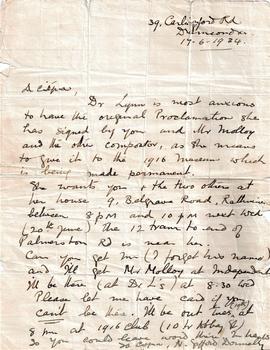 39, Carlingford Rd
Drumcondra
17-6-1934.
A chara,
Dr Lynn is most anxious
to have the original Proclamation she
has signed by you and Mr Molloy
and the other compositor, as she means
to give it to the 1916 Museum which
is being made permanent.
She wants you & the two others at
her house 9, Belgrave Road, Rathmines
between 8 pm and 10 pm next Wed
(20th June) The 12 tram to end of
Palmerston Rd is near her.
Can you get Mr (I forget his name)
and I'll get Mr Molloy at Independent
I'll be there (at Dr L's) at 8:30 Wed
Please let me have card if you
can't be there. I'll be out Tues. at
8 pm at 1916 Club (10 Lr Abbey St)
So you could leave word there
N. Gifford Donnelly